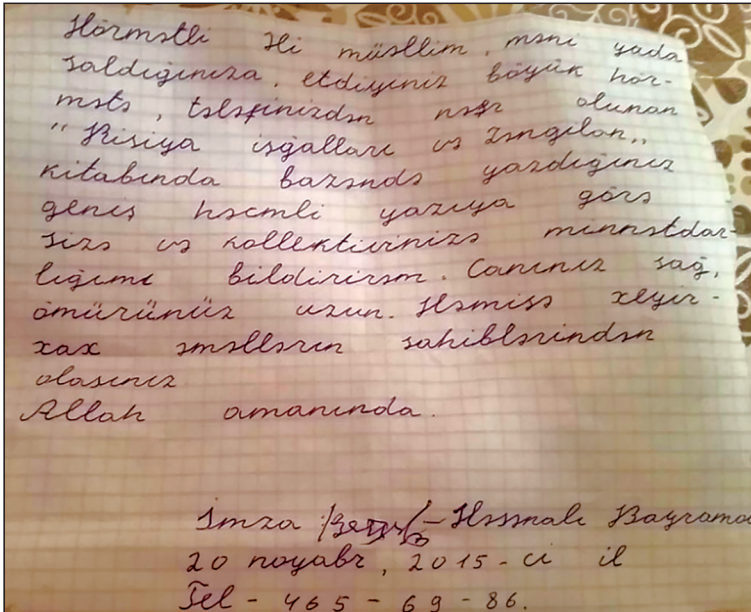 Hörmətli Əli müəllim, məni yada
saldığınıza, etdiyiniz böyük hör-
mətə, tərəfinizdən nəşr olunan
"Rusiya işğalları və Zəngilan"
kitabında bəzəndə yazdığınız
geniş həcmli yazıya görə
sizə və kollektivinizə minnətdar-
lığımı bildirirəm. Canınız sağ,
ömürünüz uzun. Həmişə xeyir-
xax əməllərin sahiblərindən
olasınız
Allah amanında.
İmza - Həsənalı Bayramo
20 noyabr, 2015-ci il
Tel - 465 - 69 - 86.